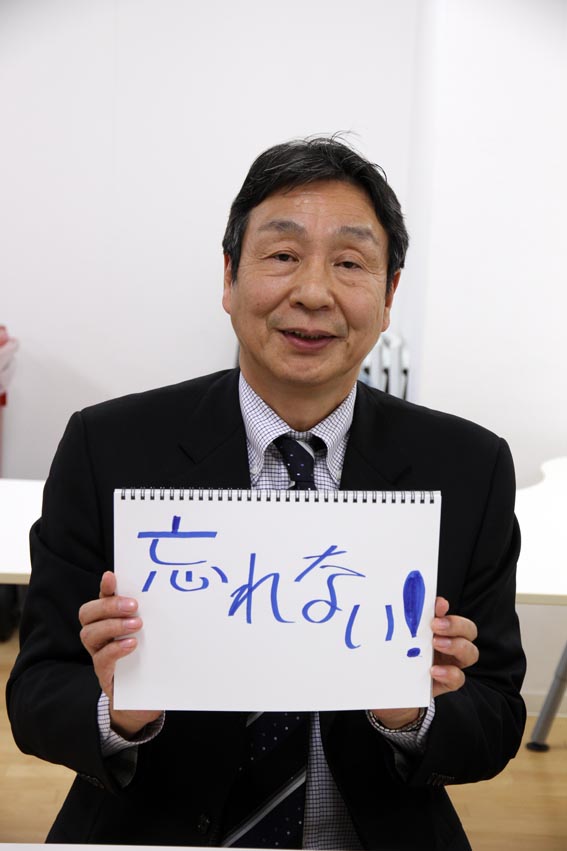 忘れない!